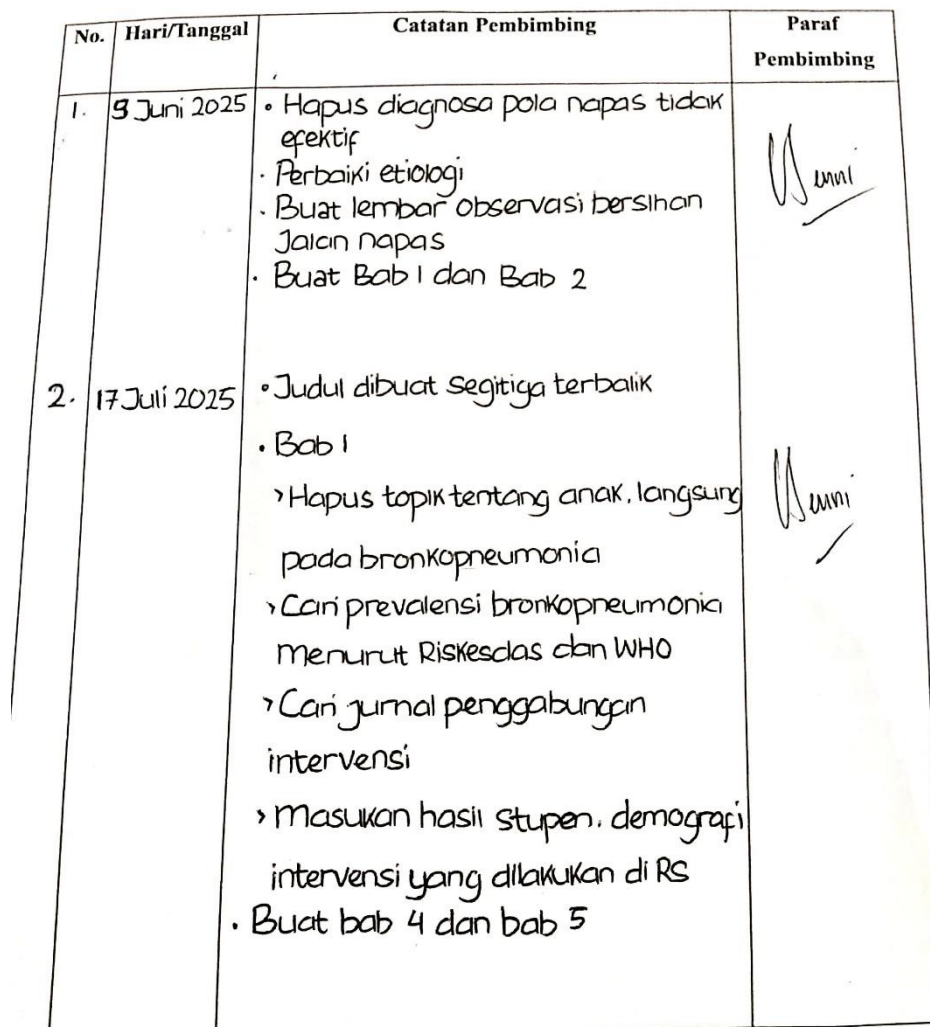 No. Hari/Tanggal Catatan Pembimbing Paraf
Pembimbing
1. 9 Juni 2025 • Hapus diagnosa pola napas tidak
efektif
• Perbaiki etiologi
• Buat lembar observasi bersihan
Jalan napas
• Buat Bab 1 dan Bab 2
2. 17 Juli 2025 • Judul dibuat segitiga terbalik
• Bab 1
> Hapus topik tentang anak, langsung
pada bronkopneumonia
> Cari prevalensi bronkopneumonia
menurut Riskesdas dan WHO
> Cari jurnal penggabungan
intervensi
> Masukan hasil stupen, demografi
intervensi yang dilakukan di RS
• Buat bab 4 dan bab 5